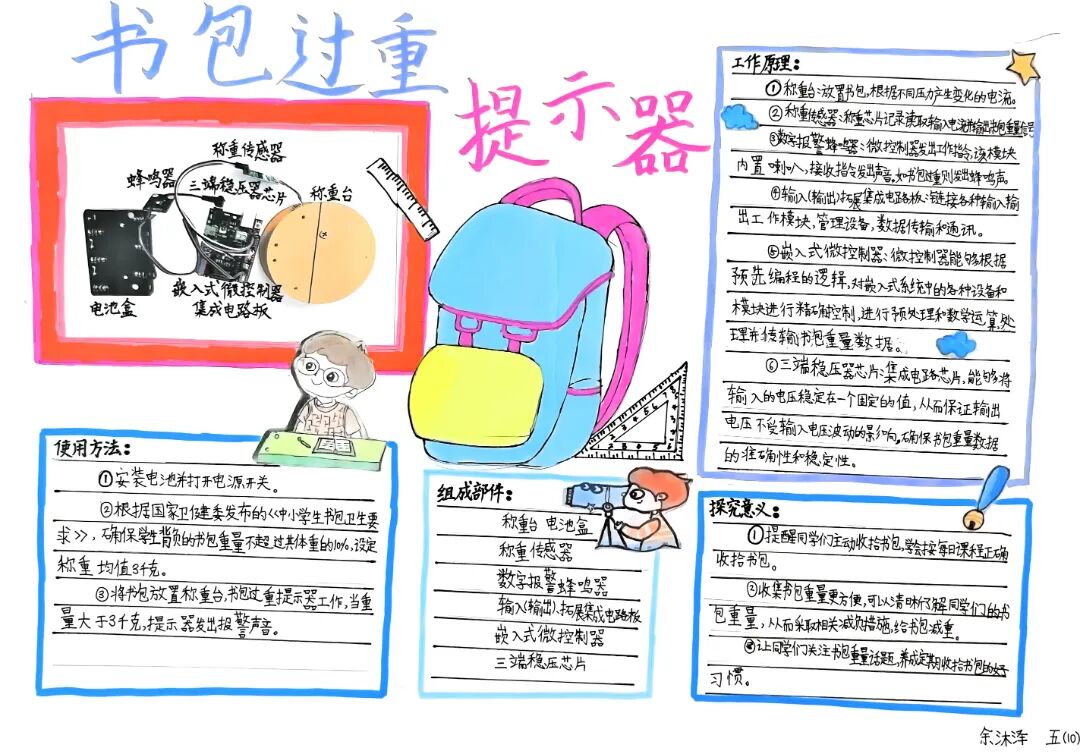 书包过重
提示器
称重传感器
蜂鸣器
三端稳压器芯片
称重台
嵌入式微控制器
集成电路板
电池盒
工作原理：
①称重台：放置书包，根据不同压力产生变化的电流。
②称重传感器：称重芯片记录读取输入电流并输出书包重量信号
③数字报警蜂鸣器：微控制器发出工作指令，该模块
内置喇叭，接收指令发出声音。如书包过重则发出蜂鸣声。
④输入(输出)拓展集成电路板：链接各种输入输
出工作模块，管理设备，数据传输和通讯。
⑤嵌入式微控制器：微控制器能够根据
预先编程的逻辑，对嵌入式系统中的各种设备和
模块进行精确控制，进行预处理和数学运算，处
理并传输书包重量数据。
⑥三端稳压器芯片：集成电路芯片，能够将
输入的电压稳定在一个固定的值，从而保证输出
电压不受输入电压波动的影响。确保书包重量数据
的准确性和稳定性。
使用方法：
①安装电池并打开电源开关。
②根据国家卫健委发布的《中小学生书包卫生要
求》，确保学生背负的书包重量不超过其体重的10%，设定
称重均值3千克。
③将书包放置称重台，书包过重提示器工作，当重
量大于3千克，提示器发出报警声音。
组成部件：
称重台 电池盒
称重传感器
数字报警蜂鸣器
输入(输出)、拓展集成电路板
嵌入式微控制器
三端稳压芯片
探究意义：
①提醒同学们主动收拾书包，学会按每日课程正确
收拾书包。
②收集书包重量更方便，可以清晰了解同学们的书
包重量，从而采取相关减负措施，给书包减重。
③让同学们关注书包重量话题，养成定期收拾书包的好
习惯。
余沐泽 五(10)